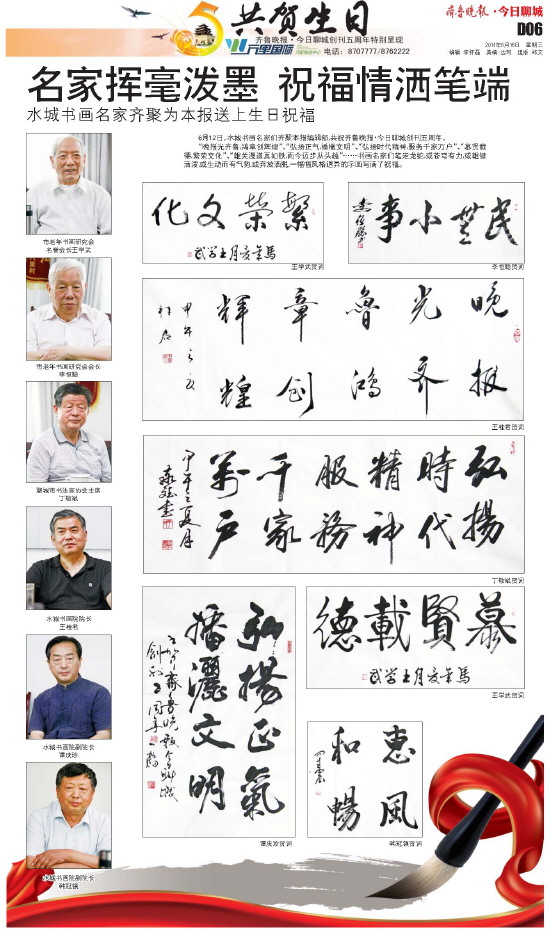 共贺生日
齐鲁晚报·今日聊城创刊五周年特别呈现
万里国际
电话：8707777/8762222
齐鲁晚报·今日聊城
D06
名家挥毫泼墨 祝福情洒笔端
水城书画名家齐聚为本报送上生日祝福
6月12日，水城书画名家们齐聚本报编辑部，共祝齐鲁晚报·今日聊城创刊五周年。
“晚报光齐鲁，鸿章创辉煌”、“弘扬正气，播撒文明”、“弘扬时代精神，服务千家万户”、“慕贤载
德，繁荣文化”、“雄关漫道真如铁，而今迈步从头越”……书画名家们笔走龙蛇，或苍穹有力，或雄健
洒泼，或生动而有气势，或奔放洒脱，一幅幅风格迥异的字画写满了祝福。
市老年书画研究会
名誉会长王学武
市老年书画研究会会长
李恒勤
聊城市书法家协会主席
丁敬斌
水城书画院院长
王桂君
水城书画院副院长
谭庆珍
水城书画院副院长
韩冠镇
化文荣繁
马年夏月王学武
王学武贺词
事小无民
李恒勤贺词
晚报
光齐
鲁鸿
章创
辉煌
甲午之夏
桂君
王桂君贺词
弘揚
時代
精神
服務
千家
萬户
甲午之夏月
丁敬斌贺词
弘揚正氣
播灑文明
谭庆珍贺词
德載賢慕
马年夏月王学武
王学武贺词
惠風
和暢
韩冠镇贺词